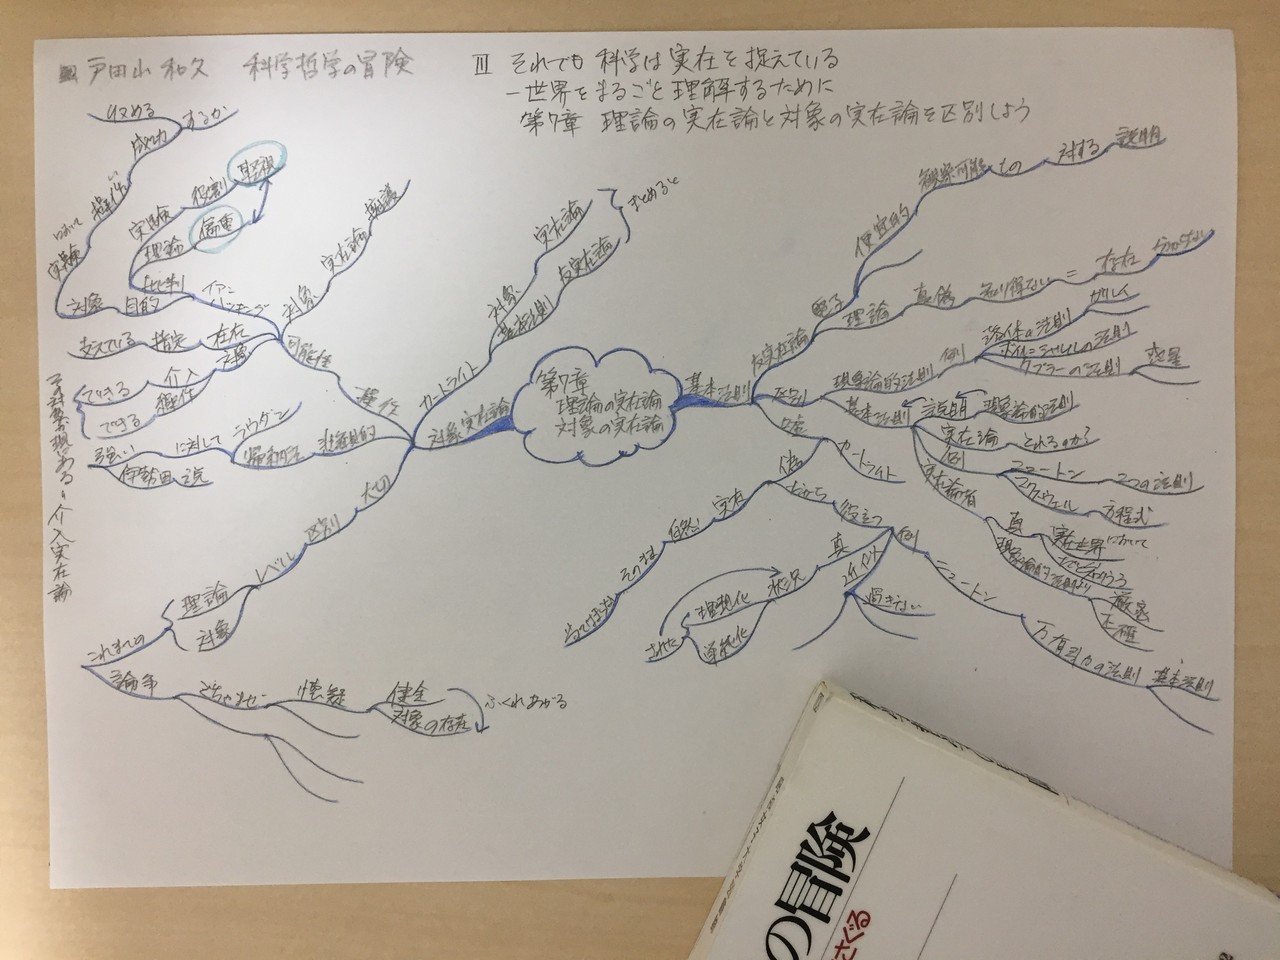 戸田山和久 科学哲学の冒険
Ⅲ それでも科学は実在を捉えている
―世界をまるごと理解するために
第7章 理論の実在論と対象の実在論を区別しよう
第7章
理論の実在論
対象の実在論
基本法則
反実在論
電子
便宜的
観察可能
もの
対する
説明
理論
真偽
知り得ない
=
存在
分からない
区別
現象論的法則
例
落体の法則
ガリレイ
ボイル=シャルルの法則
ケプラーの法則
惑星
基本法則
説明
現象論的法則
実在論
とれるのか?
例
ニュートン
2つの法則
マクスウェル
方程式
実在論者
真
実在世界
について
現象論的法則より
厳密
正確
カートライト
だから
役立つ
例
ニュートン
万有引力の法則
基本法則
真
状況
理想化
単純化
された
過ぎない
実在
自然
そのまま
当てはまらない
対象実在論
カートライト
対象
実在論
基本法則
反実在論
まとめると
操作
可能性
対象
実在論
擁護
イアン
ハッキング
批判
理論
偏重
実験
役割
軽視
目的
対象
実験
において
操作
成功
収める
するか
存在
措定
支えている
対象
介入
できる
操作
できる
その対象が実現にある=介入実在論
悲観的
帰納法
ラウダン
に対して
強い
伊勢田
説
大切
区別
レベル
理論
対象
これまでの
論争
ごちゃまぜ
懐疑
健全
対象の存在
ふくれあがる
の冒険
さぐる